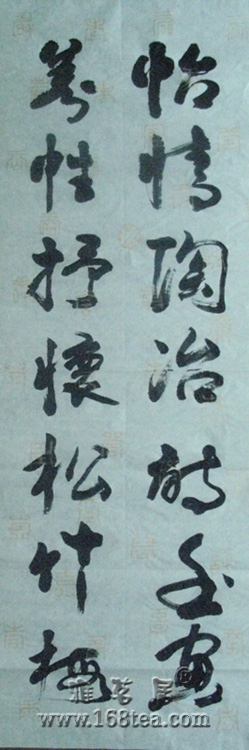 怡情陶冶詩書畫
養性抒懷松竹梅
雅茗居
www.168tea.com